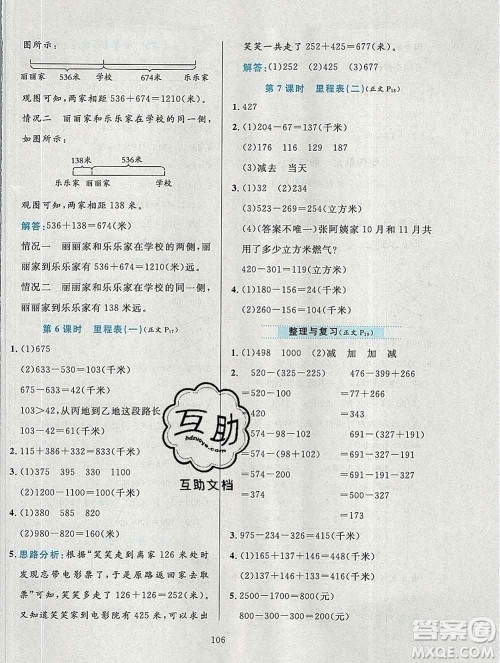 图所示:
丽丽家 536米 学校 674米 乐乐家
观图可知,两家相距 536+674=1210(米)
情况二 丽丽家和乐乐家在学校的同一侧,
如图所示:
138米 536米
乐乐家 丽丽家 学校
观图可知,两家相距 138 米。
解答:536+138=674(米)
情况一 丽丽家和乐乐家在学校的两侧,丽
丽家到乐乐家有 536+674=1210(米)远。
情况二 丽丽家和乐乐家在学校的同一侧,丽
丽家到乐乐家有 138 米远。
第 6 课时 里程表(一)(正文 P17)
1. (1)675
(2)633-530=103(千米)
854-812=42(千米)
103-42=61(千米)
103>42,从丙地到乙地这段路长
2. 115+386-110=391(千米)
3. (1)375 590 330 95
(2)380+430=810(千米)
4. (1)580 820 680
(2)980-820=160(千米)
5. 思路分析:根据“笑笑走到离家 126 米处时
发现忘带电影票了,于是原路返回家去取
票,又知道笑笑家到电影院有 425 米,可以求出
笑笑一共走了 252+425=677(米)。
解答:(1)252 (2)425 (3)677
第 7 课时 里程表(二)(正文 P18)
1. 427
2. (1)204-67=137(千米)
(2)197 181 116 148
(3)减去 当天
3. (1)32 (2)234
(3)523-254=269(立方米)
(4)(答案不唯一)张阿姨家 10 月和 11 月共
用了多少立方米燃气?
420-301=119(立方米)
4. (1)180-156=24(千米)
(2)301-180=121(千米)
整理与复习(正文 P19)
1. (1)498 1000 (2)减 加 加 减
2. 520-(325-105) 476-299+364
=520-220 =177+364
=300 =541
574-265-56 265+(327-110)
=574-(265+56) =265+217
=574-321 =482
=253
3. 975-234-326=415(千米)
4. (1)165+137+146=448(千米)
(2)143+151+137=431(千米)
5. 2000-700-500=800(元)
800-300-200=300(元)
106
互助
hdzuoye.com
互助文档
答案圈
MXQE.COM